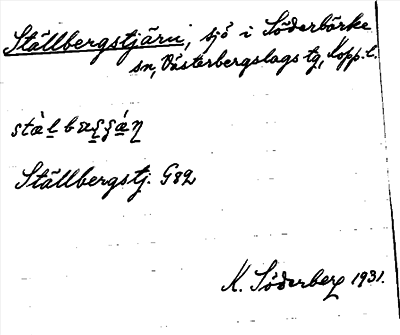 Ställbergstjärn, sjö i Söderbärke
sn, Västerbergslags tg, Kopp. l.
Ställbergstj. G82
K. Söderberg 1931.